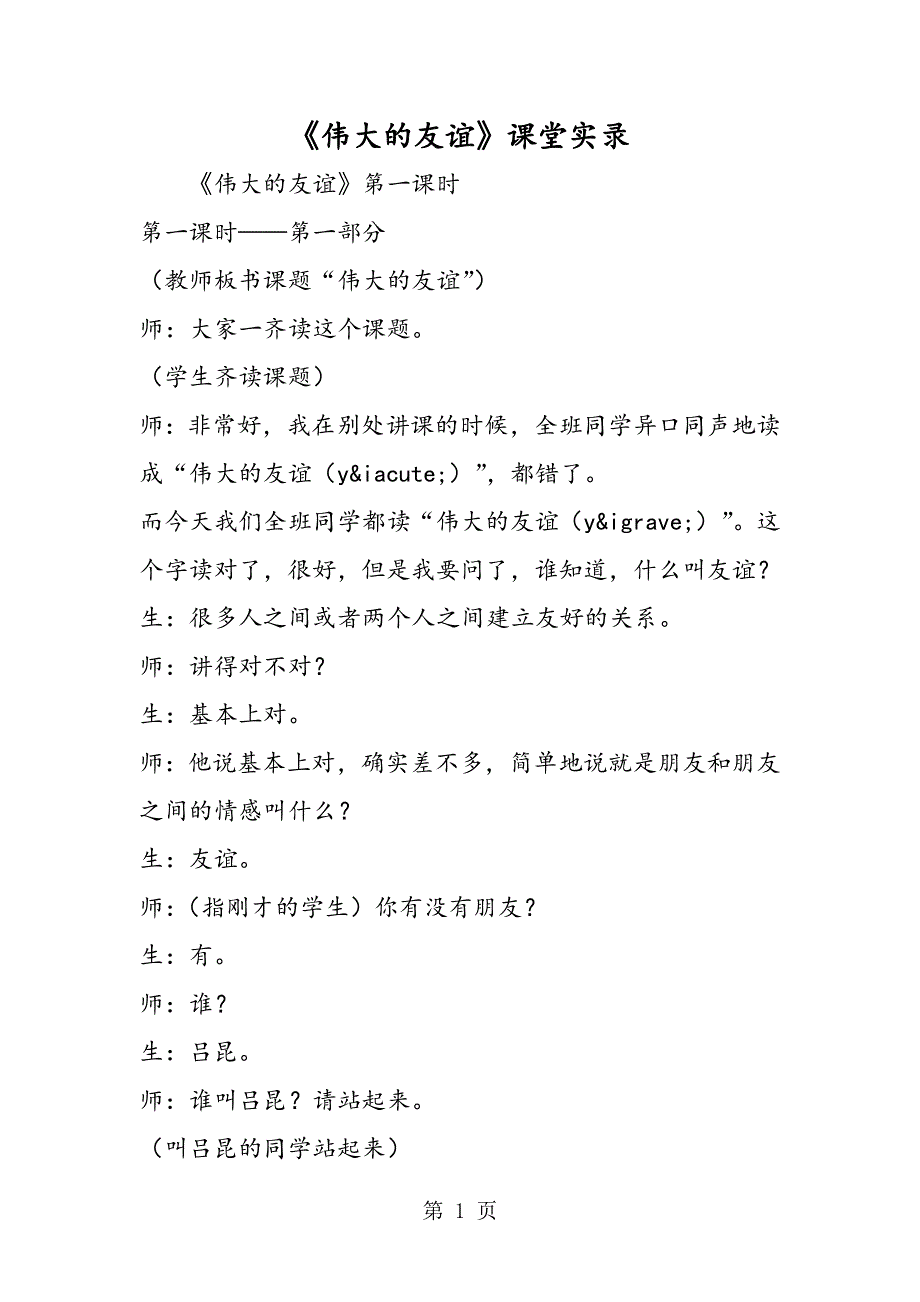 《伟大的友谊》课堂实录
《伟大的友谊》第一课时
第一课时——第一部分
（教师板书课题“伟大的友谊”）
师：大家一齐读这个课题。
（学生齐读课题）
师：非常好，我在别处讲课的时候，全班同学异口同声地读
成“伟大的友谊（y&iacute;）”，都错了。
而今天我们全班同学都读“伟大的友谊（y&igrave;）”。这
个字读对了，很好，但是我要问了，谁知道，什么叫友谊？
生：很多人之间或者两个人之间建立友好的关系。
师：讲得对不对？
生：基本上对。
师：他说基本上对，确实差不多，简单地说就是朋友和朋友
之间的情感叫什么？
生：友谊。
师：（指刚才的学生）你有没有朋友？
生：有。
师：谁？
生：吕昆。
师：谁叫吕昆？请站起来。
（叫吕昆的同学站起来）
第 1 页